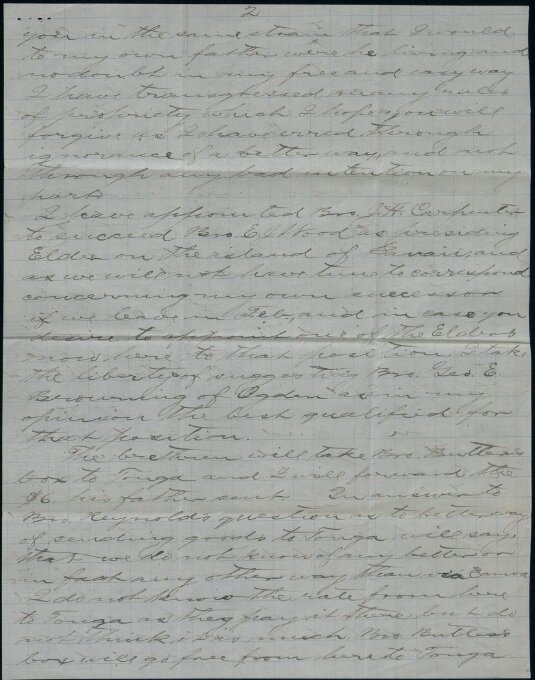 2
your in the same strain that I would
to my own father were he living and
no doubt in my free and easy way
I have transgressed many rules
of propriety which I hope you will
forgive as I have erred through
ignorance of a better way, and not
through any bad intention on my
part.
I have appointed Bro. J. H. Carpenter
to succeed Bro. E. J. Wood as presiding
Elder on the island of Savaii, and
as we will not have time to correspond
concerning my own successor
if we leave in Feb, and in case you
desire to appoint one of the Elders
now here to that position I take
the liberty of suggesting Bro. Geo. E.
Browning of Ogden as in my
opinion the best qualified for
that position.
The brethren will take Bro. Butler's
box to Tonga and I will forward the
$6. his father sent. In answer to
Bro. Reynolds question as to better way
of sending goods to Tonga will say
that we do not know of any better or
in fact any other way than via Samoa
I do not know the rate from here
to Tonga as they pay it there but do
not think it is much. Bro. Butler's
box will go free from here to Tonga